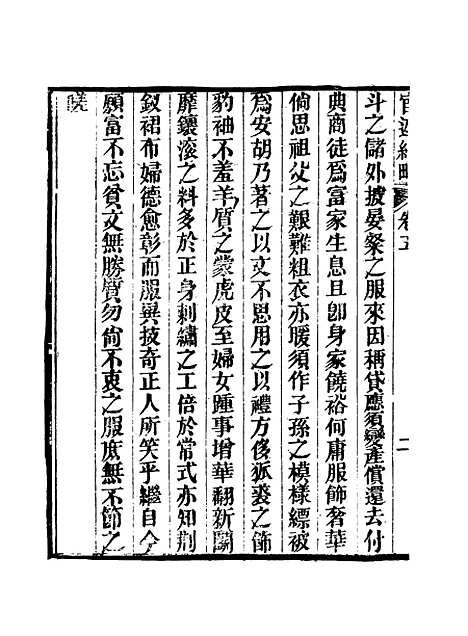 宦遊紀略 卷五 二
斗之儲外披晏粲之服來因稱貸應須變產償還去付
典商徒爲富家生息且卽身家饒裕何庸服飾奢華
倘思祖父之艱難粗衣亦暖須作子孫之模樣縹被
爲安胡乃著之以文不思用之以禮方侈狐裘之飾
豹袖不羞羊質之蒙虎皮至婦女踵事增華翻新鬬
靡鑲滚之料多於正身刺繡之工倍於常式亦知荆
釵裙布婦德愈彰而服異技奇正人所笑乎繼自今
願富不忘貧文無勝質勿尙不衷之服庶無不節之
嗟